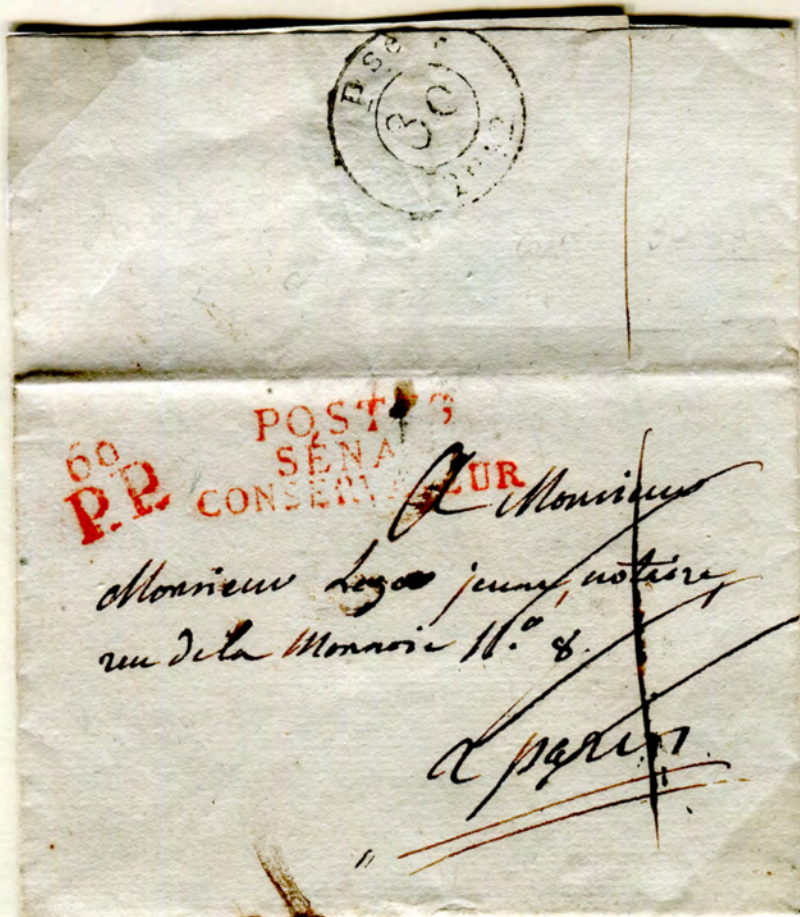 30
60
P.P.
POSTES
SÉNAT
CONSERVATEUR
A Monsieur
Monsieur jeune, notaire,
rue de la Monnoie N.º 8.
A paris